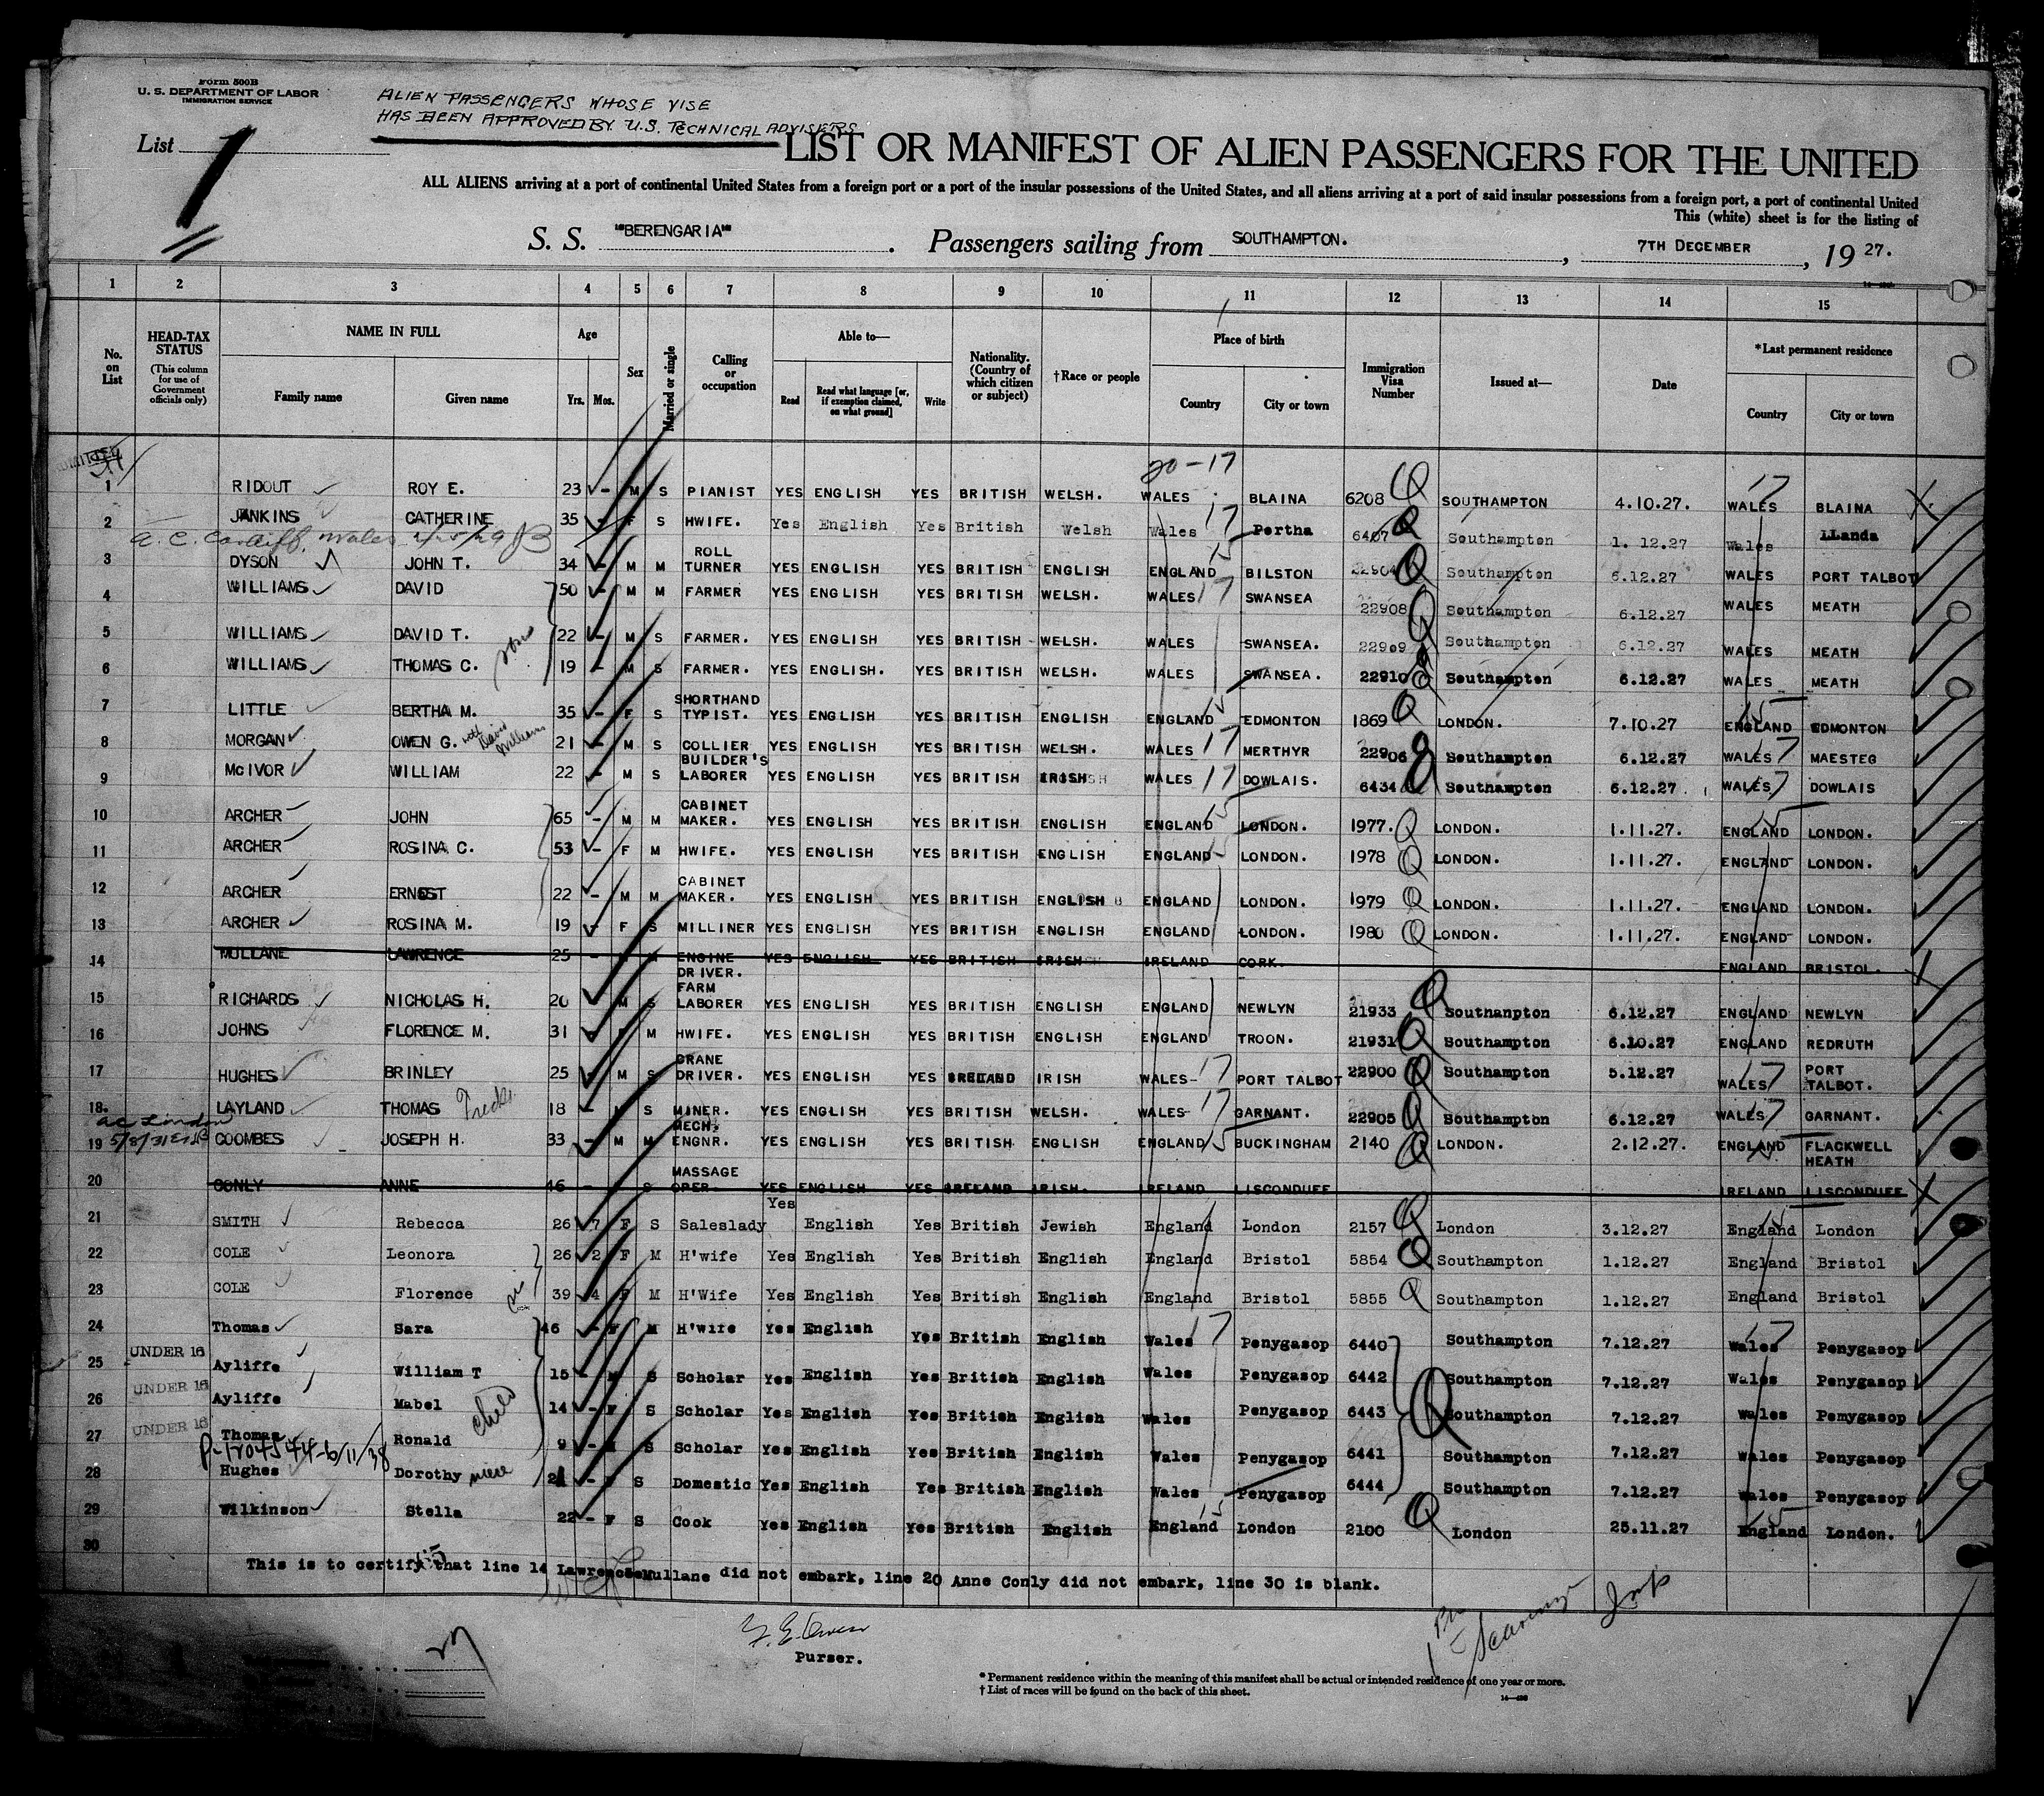 Form 500B
U. S. DEPARTMENT OF LABOR
IMMIGRATION SERVICE
ALIEN PASSENGERS WHOSE VISE
HAS BEEN APPROVED BY U.S. TECHNICAL ADVISERS
List 1
LIST OR MANIFEST OF ALIEN PASSENGERS FOR THE UNITED
ALL ALIENS arriving at a port of continental United States from a foreign port or a port of the insular possessions of the United States, and all aliens arriving at a port of said insular possessions from a foreign port, a port of continental United
This (white) sheet is for the listing of
S. S. "BERENGARIA" . Passengers sailing from SOUTHAMPTON. , 7TH DECEMBER , 19 27.
1 2 3 4 5 6 7 8 9 10 11 12 13 14 15
No. on List HEAD-TAX STATUS (This column for use of Government officials only) NAME IN FULL Family name Given name Age Yrs. Mos. Sex Married or single Calling or occupation Able to— Read Read what language [or, if exemption claimed, on what ground] Write Nationality. (Country of which citizen or subject) †Race or people Place of birth Country City or town Immigration Visa Number Issued at— Date *Last permanent residence Country City or town
20-17
1 RIDOUT ROY E. 23 - M S PIANIST YES ENGLISH YES BRITISH WELSH. WALES BLAINA 6208 SOUTHAMPTON 4.10.27. 17 WALES BLAINA
2 JANKINS CATHERINE 35 - F S HWIFE. Yes English Yes British Welsh Wales 17 Pertha 6407 Southampton 1. 12.27 Wales LLanda
a. c. Cardiff, Wales
3 DYSON JOHN T. 34 - M M ROLL TURNER YES ENGLISH YES BRITISH ENGLISH ENGLAND 15 BILSTON 22904 Southampton 6.12.27 WALES PORT TALBOT
4 WILLIAMS DAVID 50 - M M FARMER YES ENGLISH YES BRITISH WELSH. WALES 17 SWANSEA 22908 Southampton 6.12.27 WALES MEATH
5 WILLIAMS DAVID T. 22 - M S FARMER. YES ENGLISH YES BRITISH WELSH. WALES SWANSEA. 22909 Southampton 6.12.27 WALES MEATH
sons
6 WILLIAMS THOMAS C. 19 - M S FARMER. YES ENGLISH. YES BRITISH WELSH. WALES SWANSEA. 22910 Southampton 6.12.27 WALES MEATH
7 LITTLE BERTHA M. 35 - F S SHORTHAND TYPIST. YES ENGLISH YES BRITISH ENGLISH ENGLAND 15 EDMONTON 1869 LONDON. 7.10.27 15 ENGLAND EDMONTON
8 MORGAN OWEN G. with David Williams 21 - M S COLLIER YES ENGLISH YES BRITISH WELSH. WALES 17 MERTHYR 22906 Southampton 6.12.27 WALES 17 MAESTEG
9 McIVOR WILLIAM 22 - M S BUILDER'S LABORER YES ENGLISH YES BRITISH IRISH WALES 17 DOWLAIS. 6434 Southampton 6.12.27 WALES 17 DOWLAIS
10 ARCHER JOHN 65 - M M CABINET MAKER. YES ENGLISH YES BRITISH ENGLISH ENGLAND 15 LONDON. 1977. LONDON. 1.11.27. 15 ENGLAND LONDON.
11 ARCHER ROSINA C. 53 - F M HWIFE. YES ENGLISH YES BRITISH ENGLISH ENGLAND LONDON. 1978 LONDON. 1.11.27. ENGLAND LONDON.
12 ARCHER ERNEST 22 - M M CABINET MAKER. YES ENGLISH YES BRITISH ENGLISH ENGLAND LONDON. 1979 LONDON. 1.11.27. ENGLAND LONDON.
13 ARCHER ROSINA M. 19 - F S MILLINER YES ENGLISH YES BRITISH ENGLISH ENGLAND LONDON. 1980 LONDON. 1.11.27. ENGLAND LONDON.
14 MULLANE LAWRENCE 25 - M ENGINE DRIVER. YES ENGLISH YES BRITISH IRISH IRELAND CORK. ENGLAND BRISTOL.
15 RICHARDS NICHOLAS H. 20 M S FARM LABORER YES ENGLISH YES BRITISH ENGLISH ENGLAND NEWLYN 21933 Southanpton 6.12.27 ENGLAND NEWLYN
16 JOHNS FLORENCE M. 31 - F M HWIFE. YES ENGLISH YES BRITISH ENGLISH ENGLAND TROON. 21931 Southampton 6.10.27 ENGLAND REDRUTH
17 HUGHES BRINLEY 25 - M S CRANE DRIVER. YES ENGLISH YES IRISH WALES 17 PORT TALBOT 22900 Southampton 5.12.27 WALES 17 PORT TALBOT.
18. LAYLAND THOMAS Fredk. 18 - S MINER. YES ENGLISH YES BRITISH WELSH. WALES 17 GARNANT. 22905 Southampton 6.12.27 WALES 17 GARNANT.
ac London
19 5/8/31 COOMBES JOSEPH H. 33 - M M MECH. ENGNR. YES ENGLISH YES BRITISH ENGLISH ENGLAND 15 BUCKINGHAM 2140 LONDON. 2.12.27. ENGLAND 15 FLACKWELL HEATH
20 CONLY ANNE 46 - S MASSAGE OPER. YES ENGLISH YES IRELAND IRISH. IRELAND LISCONDUFF IRELAND LISCONDUFF
21 SMITH Rebecca 26 7 F S Saleslady Yes English Yes British Jewish England London 2157 London 3.12.27 England London
22 COLE Leonora 26 2 F M H'wife Yes English Yes British English England Bristol 5854 Southampton 1.12.27 England Bristol
23 COLE Florence 39 4 F M H'Wife Yes English Yes British English England Bristol 5855 Southampton 1.12.27 England Bristol
24 Thomas Sara 46 - F M H'wife Yes English Yes British English Wales 17 Penygasop 6440 Southampton 7.12.27 17 Wales Penygasop
25 UNDER 16 Ayliffe William T 15 - M S Scholar Yes English Yes British English Wales Penygasop 6442 Southampton 7.12.27 Wales Penygasop
26 UNDER 16 Ayliffe Mabel child 14 - F S Scholar Yes English Yes British English Wales Penygasop 6443 Southampton 7.12.27 Wales Pemygasop
27 UNDER 16 Thomas Ronald 9 - M S Scholar Yes English Yes British English Wales Penygasop 6441 Southampton 7.12.27 Wales Penygasop
P-1704544-6/11/38
28 Hughes Dorothy niece 21 - F S Domestic Yes English Yes British English Wales Penygasop 6444 Southampton 7.12.27 Wales Penygasop
29 Wilkinson Stella 22 - F S Cook Yes English Yes British English England 15 London 2100 London 25.11.27 15 England London.
30
This is to certify that line 14 Lawrence Mullane did not embark, line 20 Anne Conly did not embark, line 30 is blank.
Purser.
* Permanent residence within the meaning of this manifest shall be actual or intended residence of one year or more.
† List of races will be found on the back of this sheet.